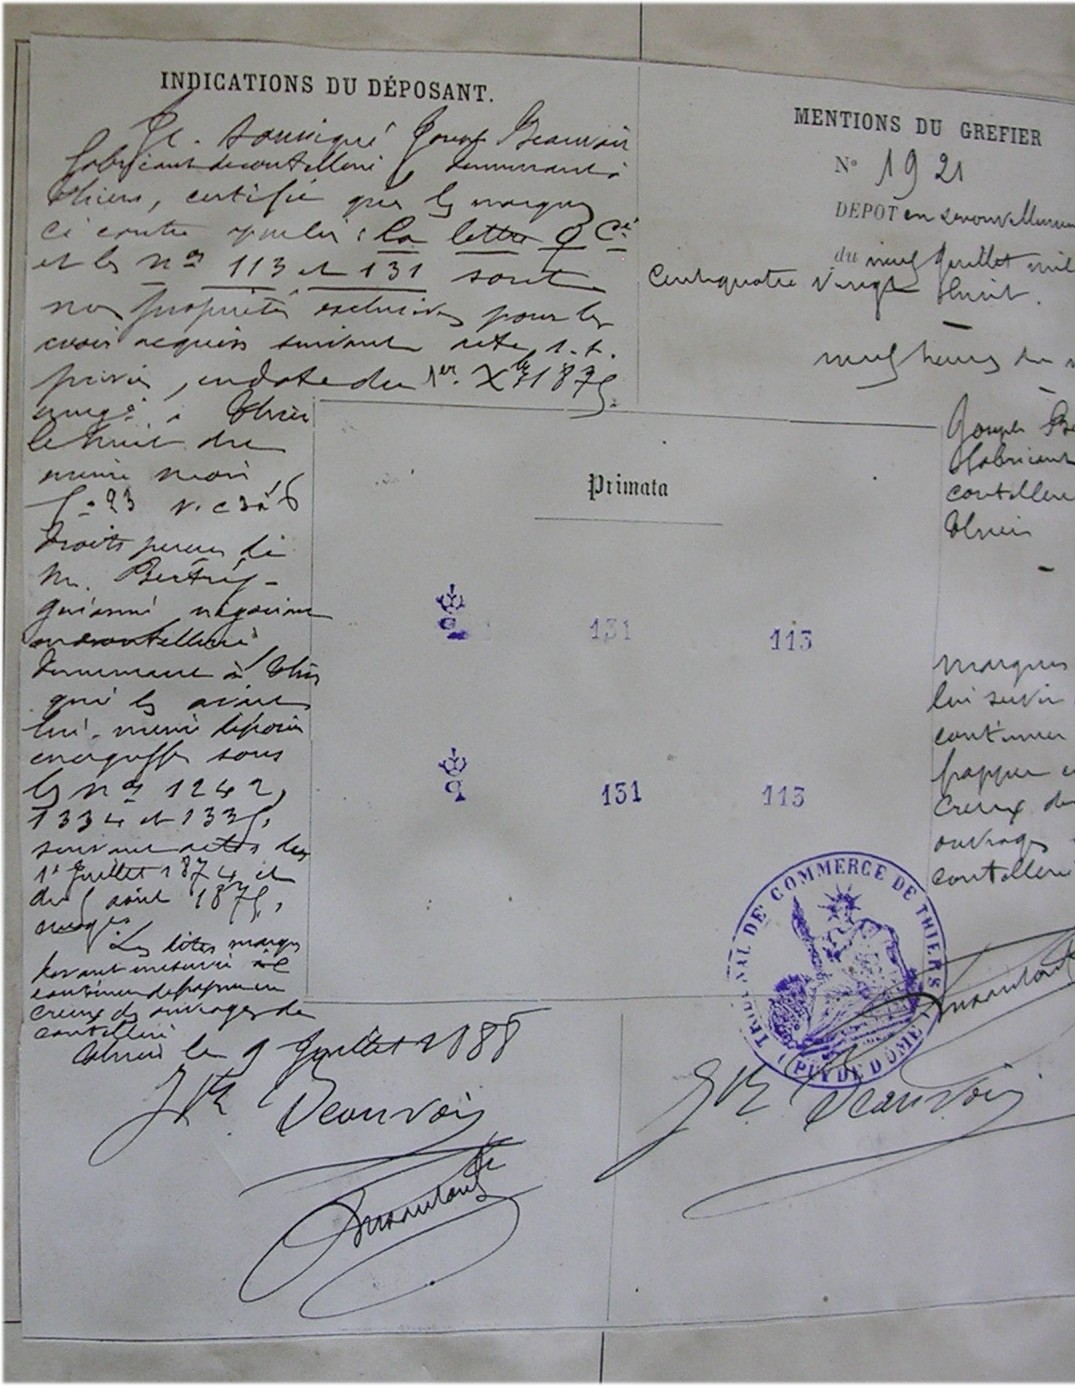 INDICATIONS DU DÉPOSANT.
Je soussigné Joseph Beauvoir
fabricant de coutellerie, demeurant à
Thiers, certifie que les marques
ci contre : la lettre Q Cé
et les nos 113 et 131 sont
nos propriétés exclusives pour les
avoir acquis suivant acte s.s.
privé, en date du 1er Xbre 1875,
à Thiers
le huit du
même mois
fo 93
droits perçus de
M.
négociant
en coutellerie
demeurant à Thiers
qui les avait
lui-même déposés
au greffe sous
les nos 1242,
1334 et 1335,
suivant actes des
1er Juillet 1874 et
du août 1875,
Les dites marques
devant me servir à
continuer de frapper en
creux des ouvrages de
coutellerie
Thiers le 9 Juillet 1888
Jh Beauvoir
MENTIONS DU GREFIER
No 1921
DÉPOT en renouvellement
du neuf Juillet mil
cent quatre vingt huit.
neuf heures du
Joseph Be
fabricant
coutellerie
Thiers
Primata
131 113
131 113
marques
lui servir
continuer
frapper en
creux des
ouvrages
coutellerie
TRIBUNAL DE COMMERCE DE THIERS
(PUY DE DÔME)
Jh Beauvoir